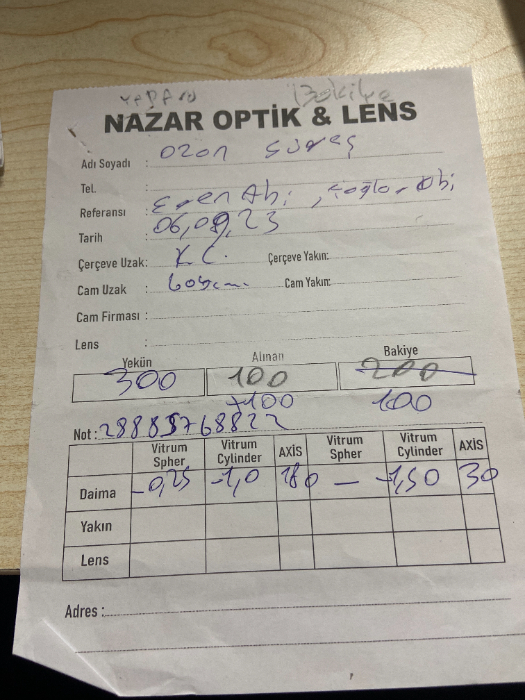 Bakiye
NAZAR OPTİK & LENS
Adı Soyadı : Ozan
Tel. :
Referansı : Eren Abi,
Tarih : 06,09,23
Çerçeve Uzak: K.Ç. Çerçeve Yakın:
Cam Uzak : Cam Yakın:
Cam Firması :
Lens :
Yekün Alınan Bakiye
300 100 200
+100 100
Not : 28885768822
Vitrum Spher Vitrum Cylinder AXİS Vitrum Spher Vitrum Cylinder AXİS
Daima -0,25 -1,0 180 — -1,50 30
Yakın
Lens
Adres :